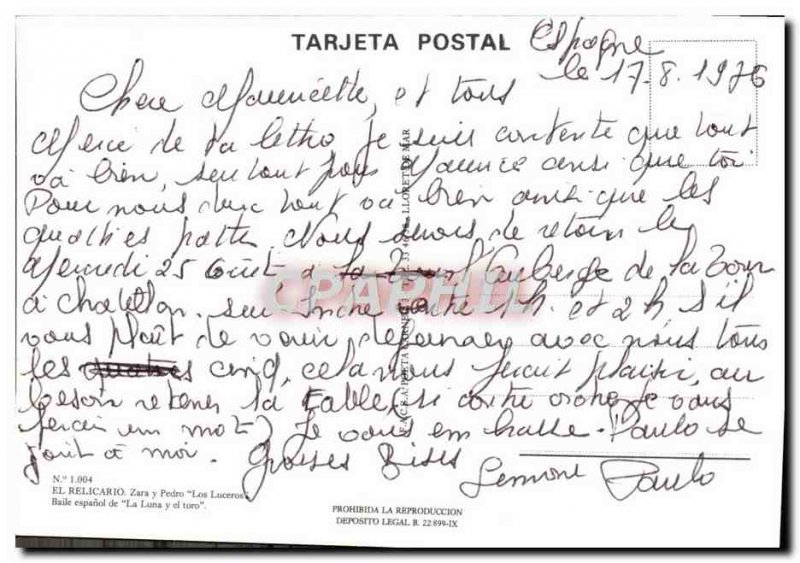 TARJETA POSTAL
Espagne
le 17.8.1976
Chere Mauricette, et tous
Merci de ta lettre Je suis contente que tout
va bien, surtout pour Maurice ainsi que toi
Pour nous deux tout va bien ainsi que les
quatres patte. Nous serons de retour le
Mercredi 25 Août à l'auberge de la Tour
à Chatillon. sur Indre entre 1h. et 2h, S'il
vous plaît de venir déjeuner avec nous tous
les cinq, cela nous ferait plaisir, au
besoin retenez la table, (si contre ordre je vous
ferais un mot) Je vous embrasse. Paulo se
joint à moi. Grosses Bises
Simone Paulo
N.° 1.004
EL RELICARIO. Zara y Pedro "Los Luceros"
Baile español de "La Luna y el toro".
PROHIBIDA LA REPRODUCCION
DEPOSITO LEGAL B. 22.899-IX
LLORET DE MAR
CPAPHIL